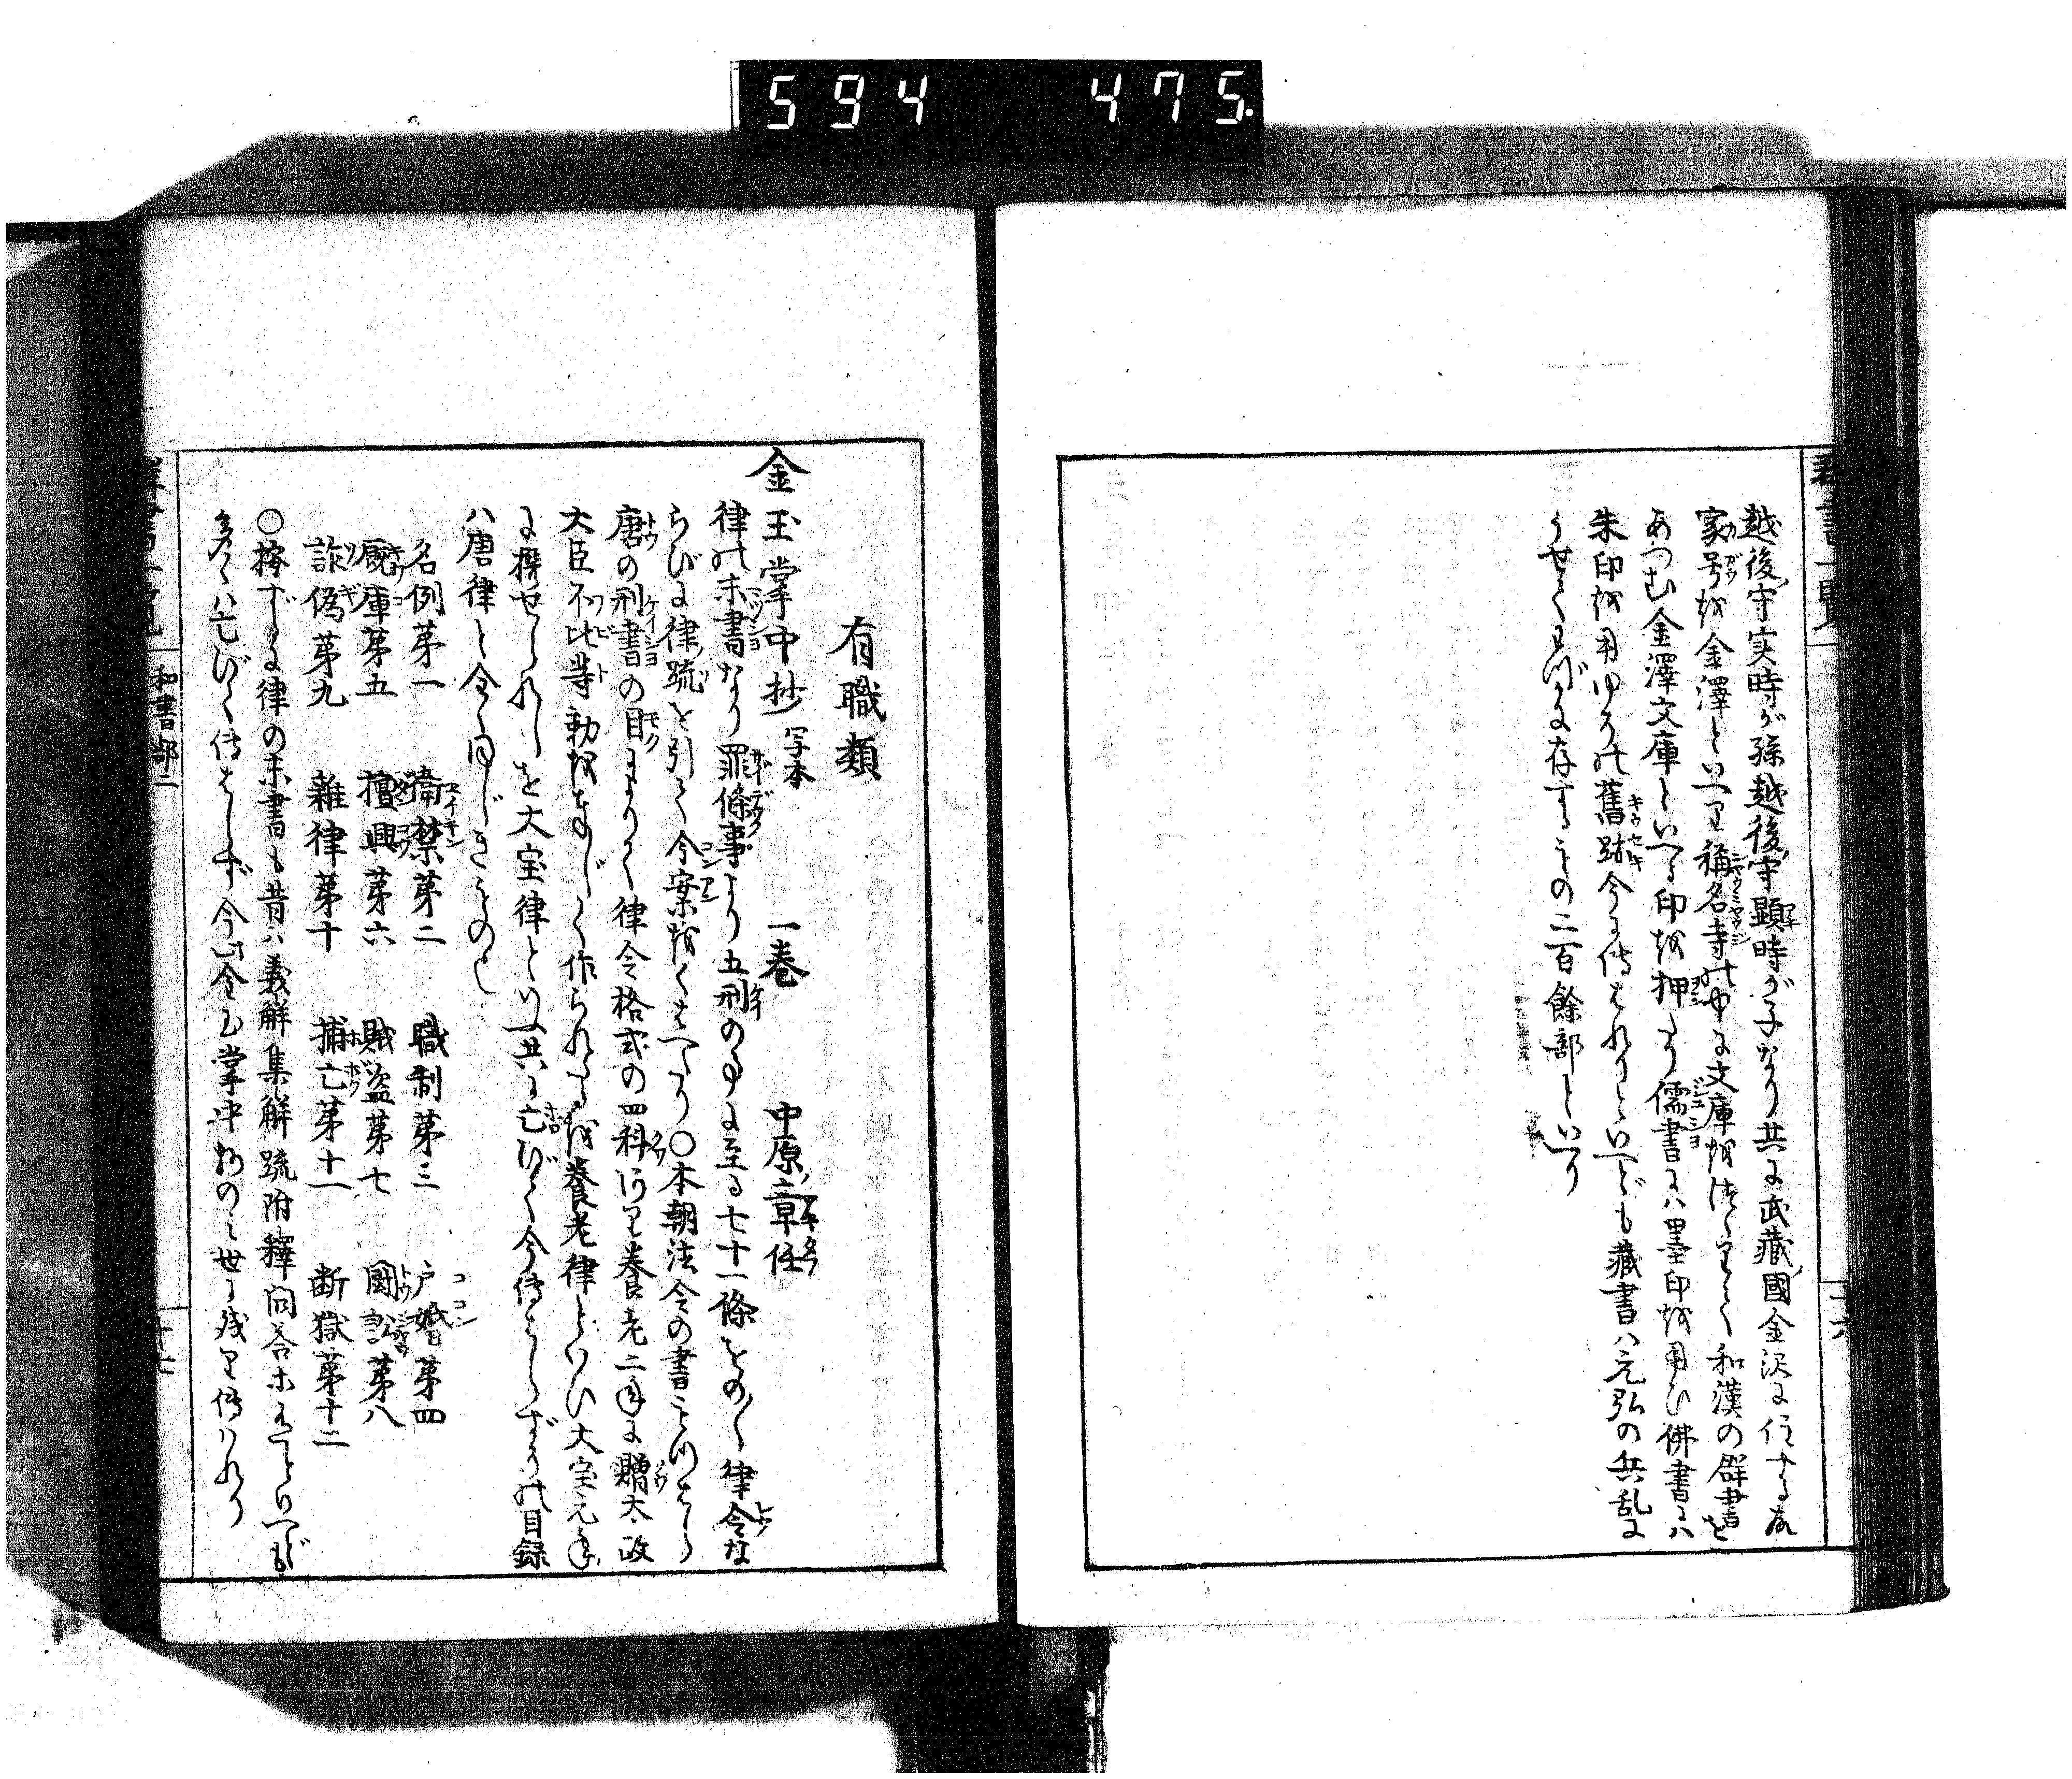 594 475
群書一覧
越後守実時が孫越後守顕時が子なり共に武蔵國金沢に住する故
家号を金澤といへり稱名寺の中に文庫をたてゝ和漢の群書を
あつむ金澤文庫といへる印を押たり儒書には墨印を用ひ佛書には
朱印を用ゆその舊跡今に傳はれりといへども藏書ハ元弘の兵乱に
うせてわづかに存するもの二百餘部といへり
十六
有職類
金玉掌中抄 写本 一巻 中原章任
律の末書なり罪條事より五刑の事に至る七十一條をのべて律令な
らびに律疏を引て今案をくはへたり○本朝法令の書
唐の刑書の目により律令格式の四科あり養老二年に贈太政
大臣不比等勅を奉じて作られたるを養老律といひ大宝元年
に撰せられしを大宝律といふ共に亡びて今傳はらずその目録
ハ唐律と全く同じきもの也
名例第一 衛禁第二 職制第三 戸婚第四
厩庫第五 擅興第六 賊盗第七 闘訟第八
詐偽第九 雜律第十 捕亡第十一 断獄第十二
○按ずるに律の末書も昔ハ義解集解疏附釋問答ホありといへども
多くハ亡びて傳はらず今此金玉掌中抄のミ世に残り傳ハれり
群書一覧
和書部二
十七